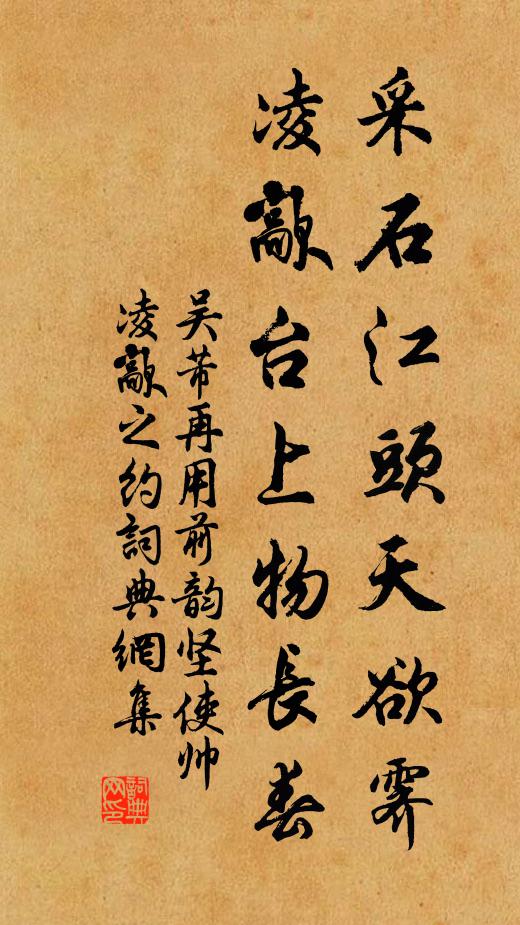 采石江頭天欲霽
凌歊台上物長春
吴芾再用前韵坚使帅
凌歊之约詞典網集
詞典网印